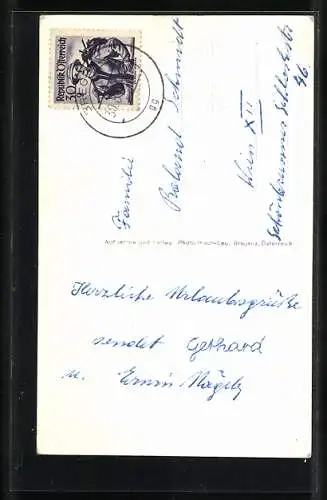 Republik Österreich
30
Familie
Roland Schmidt
Wien XII
Schönbrunner Schloßstr
46.
Aufnahme und Verlag: Photo Risch-Lau, Bregenz, Österreich
Herzliche Urlaubsgrüße
sendet Gerhard
u. Erwin